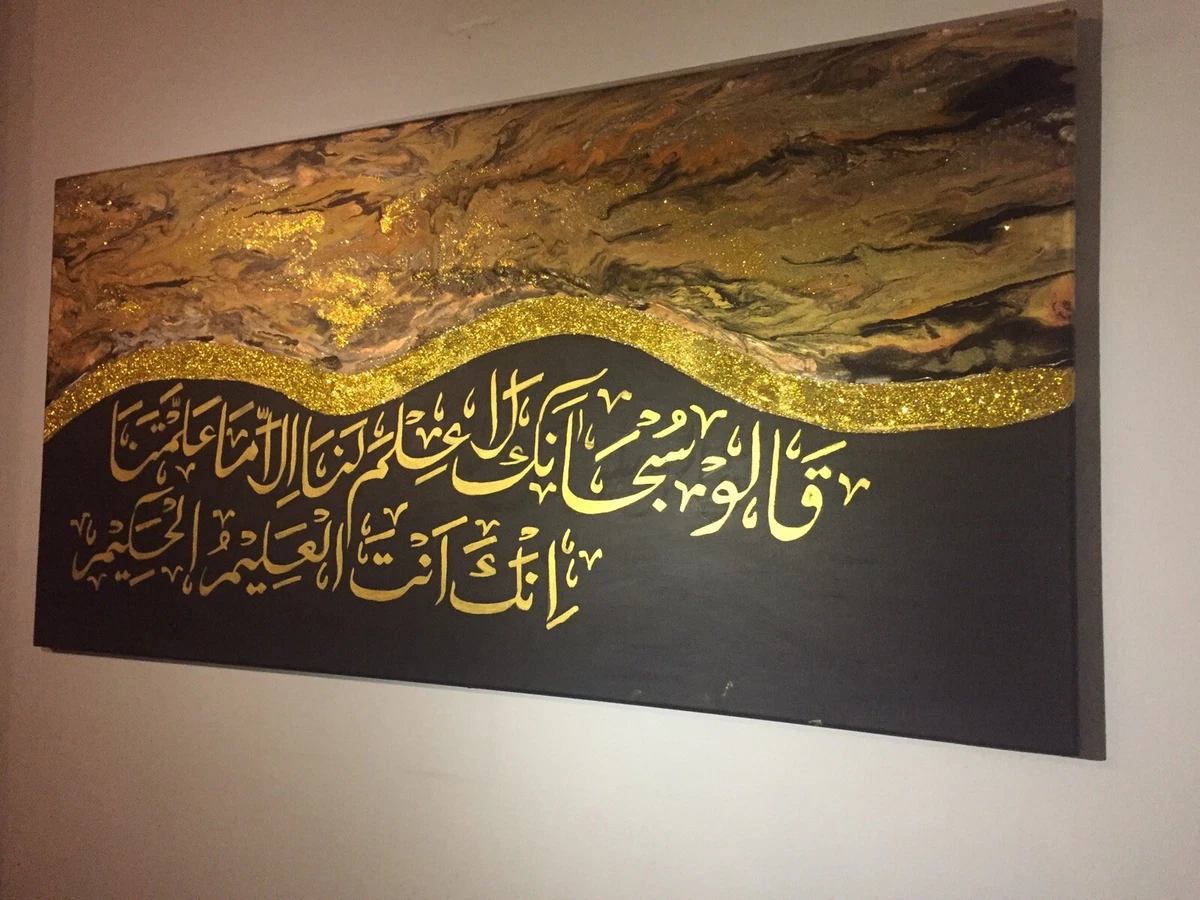 قَالوْ سُبحَانَكَ لَا عِلمَ لَنَا اِلاَّ مَا عَلَّمْتَنَا
اِنَّكَ اَنْتَ الْعَلِيْمُ الْحَكِيْمُ